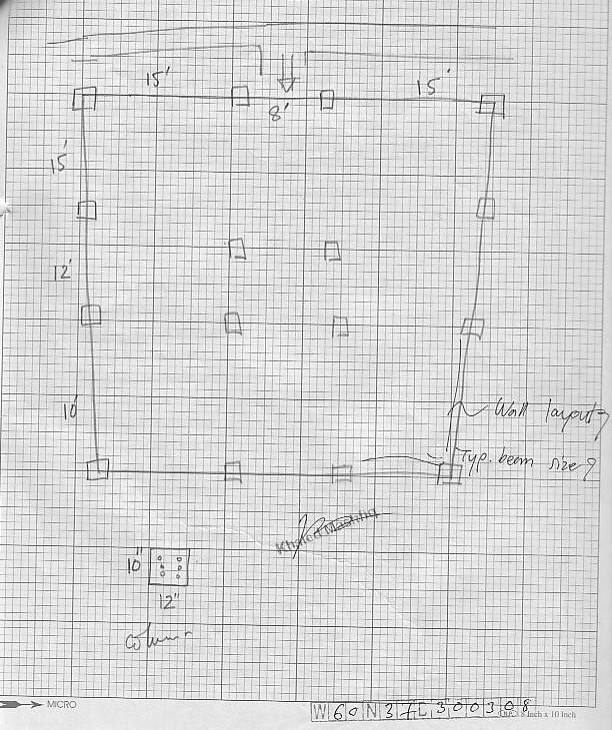 15'
15'
8'
15'
12'
10'
Wall layout?
Typ. beam size?
Khaled Mashfiq
10"
12"
column
MICRO
W 6 0 N 3 7 L 3 0 0 3 0 8
8 Inch x 10 Inch